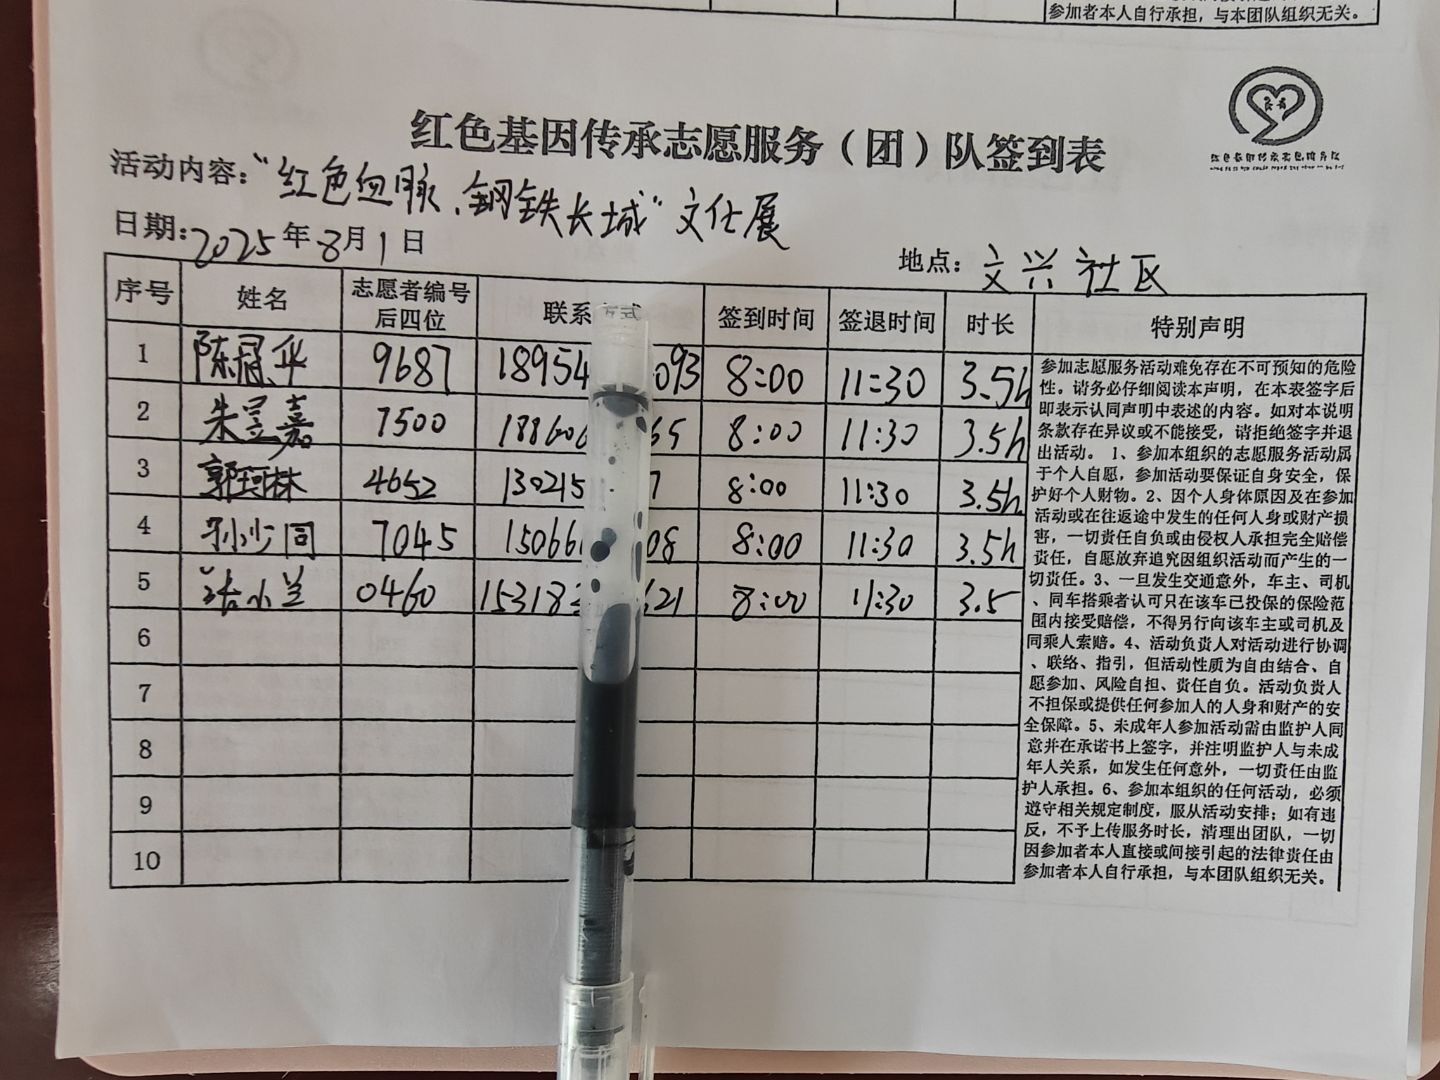 参加者本人自行承担，与本团队组织无关。
红色基因传承志愿服务（团）队签到表
活动内容："红色血脉、钢铁长城"文化展
日期：2025年8月1日
地点：文兴社区
序号 姓名 志愿者编号后四位 联系方式 签到时间 签退时间 时长 特别声明
1 陈冠华 9687 18954 093 8:00 11:30 3.5h
2 朱昱嘉 7500 188606 65 8:00 11:30 3.5h
3 郭珂林 4652 130215 7 8:00 11:30 3.5h
4 孙少同 7045 15066 08 8:00 11:30 3.5h
5 小兰 0460 15318 621 8:00 11:30 3.5
6
7
8
9
10
参加志愿服务活动难免存在不可预知的危险
性。请务必仔细阅读本声明，在本表签字后
即表示认同声明中表述的内容。如对本说明
条款存在异议或不能接受，请拒绝签字并退
出活动。 1、参加本组织的志愿服务活动属
于个人自愿，参加活动要保证自身安全，保
护好个人财物。2、因个人身体原因及在参加
活动或在往返途中发生的任何人身或财产损
害，一切责任自负或由侵权人承担完全赔偿
责任，自愿放弃追究因组织活动而产生的一
切责任。3、一旦发生交通意外，车主、司机
、同车搭乘者认可只在该车已投保的保险范
围内接受赔偿，不得另行向该车主或司机及
同乘人索赔。4、活动负责人对活动进行协调
、联络、指引，但活动性质为自由结合、自
愿参加、风险自担、责任自负。活动负责人
不担保或提供任何参加人的人身和财产的安
全保障。5、未成年人参加活动需由监护人同
意并在承诺书上签字，并注明监护人与未成
年人关系，如发生任何意外，一切责任由监
护人承担。6、参加本组织的任何活动，必须
遵守相关规定制度，服从活动安排；如有违
反，不予上传服务时长，清理出团队，一切
因参加者本人直接或间接引起的法律责任由
参加者本人自行承担，与本团队组织无关。